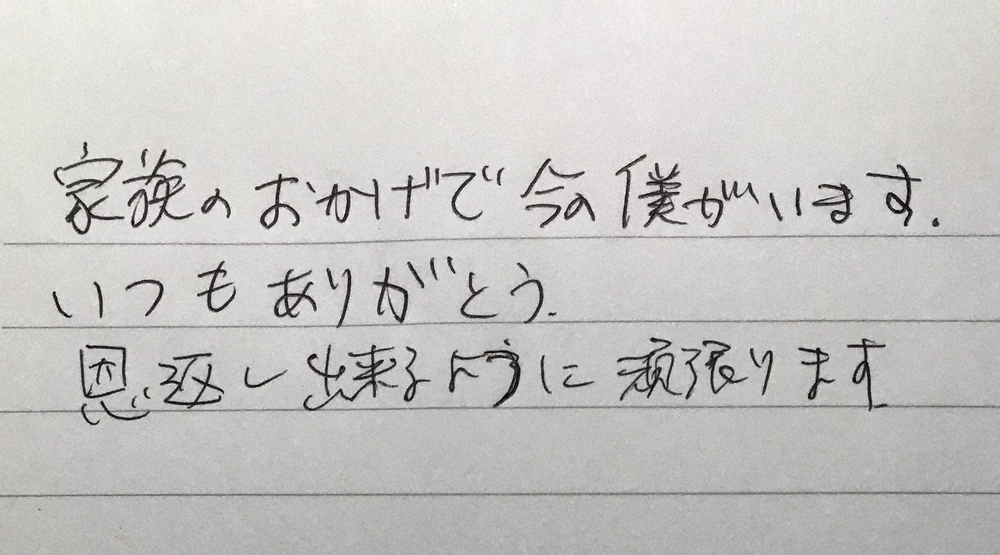 家族のおかげで今の僕がいます.
いつもありがとう.
恩返し出来るように頑張ります